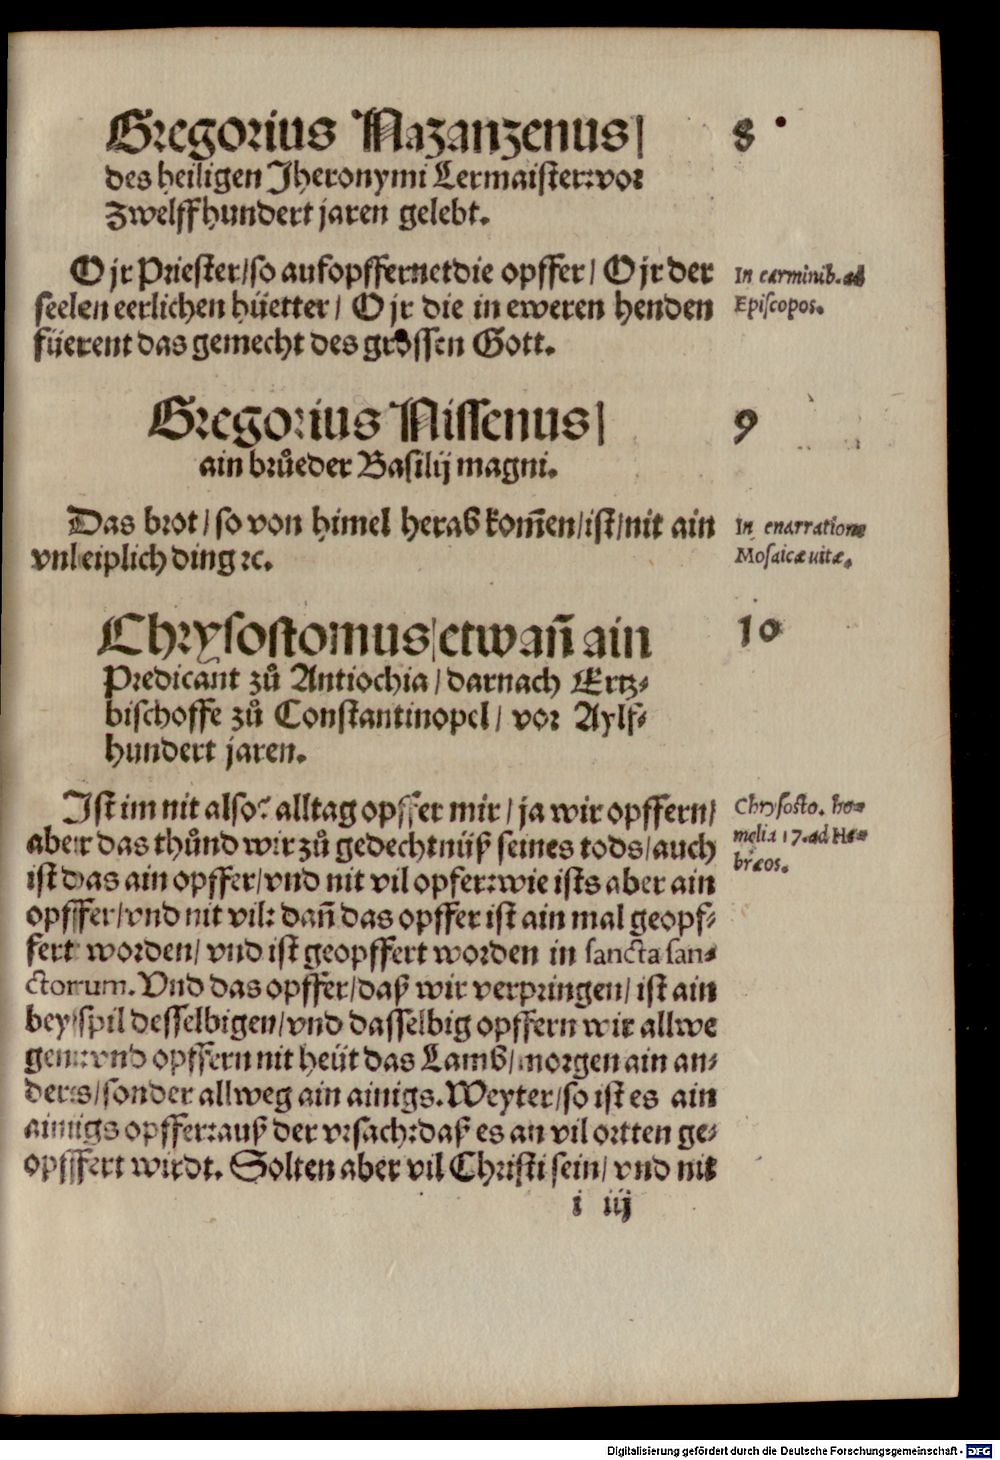 Gregorius Nazanzenus/ 8
des heiligen Jheronymi Lermaister: vor
zwelffhundert jaren gelebt.
O jr Priester/ so aufopffernet die opffer/ O jr der
seelen eerlichen hüetter/ O jr die in eweren henden
füerent das gemecht des grossen Gott.
In carminib. ad
Episcopos.
Gregorius Nissenus/ 9
ain brůeder Basilij magni.
Das brot/ so von himel herab kom̃en/ ist/ nit ain
vnleiplich ding ꝛc.
In enarratione
Mosaicæ uitæ.
Chrysostomus/ etwan̄ ain 10
Predicant zů Antiochia/ darnach Ertz⸗
bischoffe zů Constantinopel/ vor Aylf⸗
hundert jaren.
Ist im nit also? alltag opffer mir/ ja wir opffern/
aber das thůnd wir zů gedechtnüß seines tods/ auch
ist das ain opffer/ vnd nit vil opfer: wie ists aber ain
opffer/ vnd nit vil: dan̄ das opffer ist ain mal geopf⸗
fert worden/ vnd ist geopffert worden in sancta san⸗
ctorum. Vnd das opffer/ daß wir verpringen/ ist ain
beyspil desselbigen/ vnd dasselbig opffern wir allwe
gen: vnd opffern nit heüt das Lamb/ morgen ain an⸗
ders/ sonder allweg ain ainigs. Weyter/ so ist es ain
ainigs opffer: auß der vrsach: daß es an vil ortten ge⸗
opffert wirdt. Solten aber vil Christi sein/ vnd nit
Chrysosto. ho⸗
melia 17. ad He⸗
bræos.
i iij
Digitalisierung gefördert durch die Deutsche Forschungsgemeinschaft - DFG